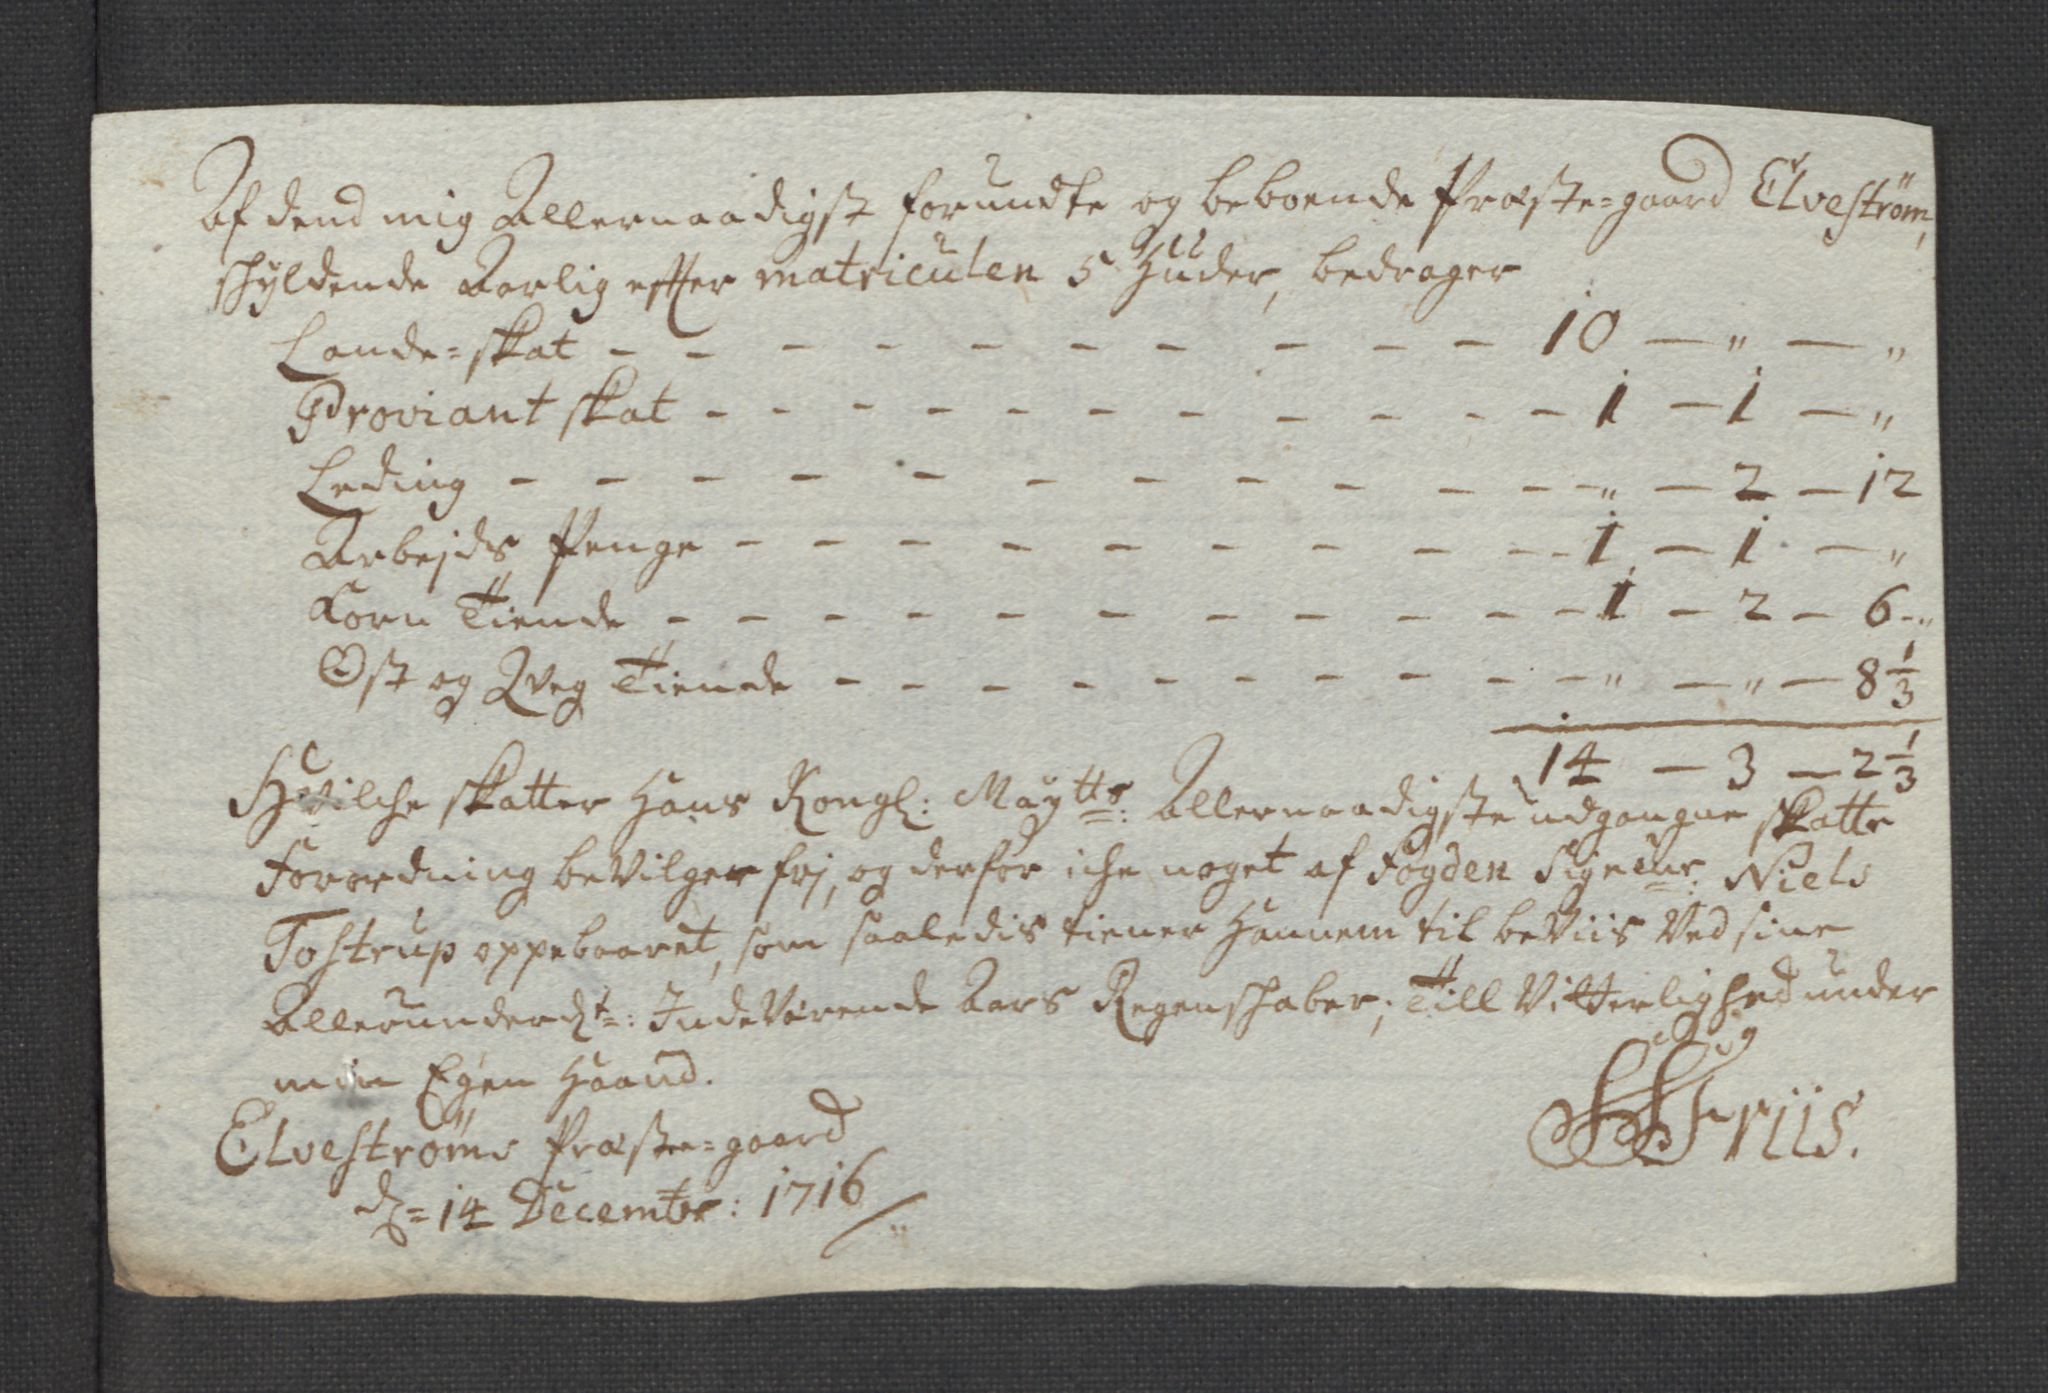 Af dend mig Allernaadigst forundte og beboende Præste=gaard Elveström,
schyldende Aarlig effter matriculen 5 Huder, bedrager
Lande=skat - - - - - - - - - - 10 — " — "
Proviant skat - - - - - - - - - - 1 — 1 — "
Leding - - - - - - - - - - - " — 2 — 12
Arbejds Penge - - - - - - - - - - 1 — 1 — "
Korn Tiende - - - - - - - - - - 1 — 2 — 6 - "
Ost og Qveg Tiende - - - - - - - - - " — " — 8 1/3
14 — 3 — 2 1/3
Hvilche skatter Hans Kongl: Maÿtts: Allernaadigste udgangne skatte
Forordning beVilger frj, og derfor iche noget af Fogden Signeur: Niels
Tostrup oppebaaret, som saaledis tiener Hannem til beViis Ved sine
Allerunderdt=: IndeVærende Aars Regenschaber; Till Vitterlighed under
min Egen Haand.
Elveströms Præste=gaard
d= 14 December: 1716
Friis.